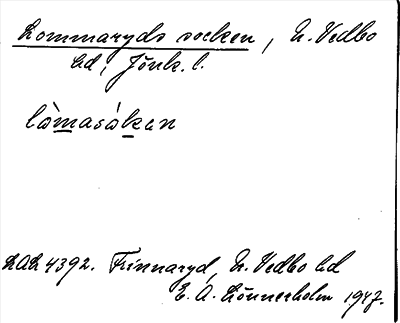 Lommaryds socken, N. Vedbo
hd, Jönk. l.
lòmasòken
LAL 4392. Frinnaryd, N. Vedbo hd
E. A. Lönnerholm 1947.